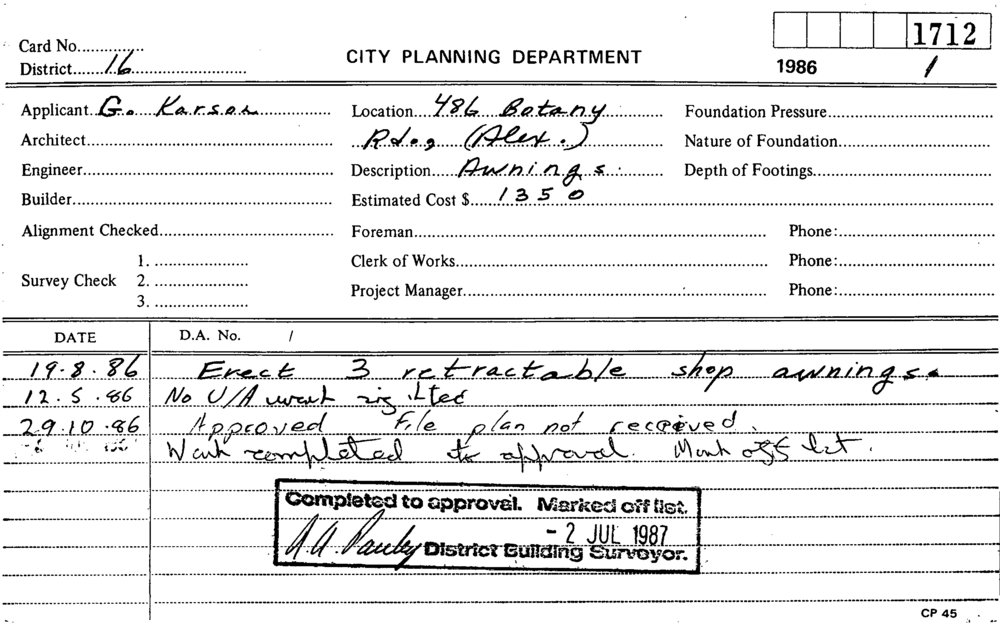 1712
Card No.
1986 /
District 16
CITY PLANNING DEPARTMENT
Applicant G. Karson Location 486 Botany Foundation Pressure
Architect Rd., (Alex.) Nature of Foundation
Engineer Description Awnings Depth of Footings
Builder Estimated Cost $ 1350
Alignment Checked Foreman Phone:
1. Clerk of Works Phone:
Survey Check 2.
3. Project Manager Phone:
DATE D.A. No. /
19.8.86 Erect 3 retractable shop awnings.
12.5.86 No U/A work sighted
29.10.86 Approved File plan not received.
Work completed to approval. Mark off list.
Completed to approval. Marked off list.
- 2 JUL 1987
District Building Surveyor.
CP 45